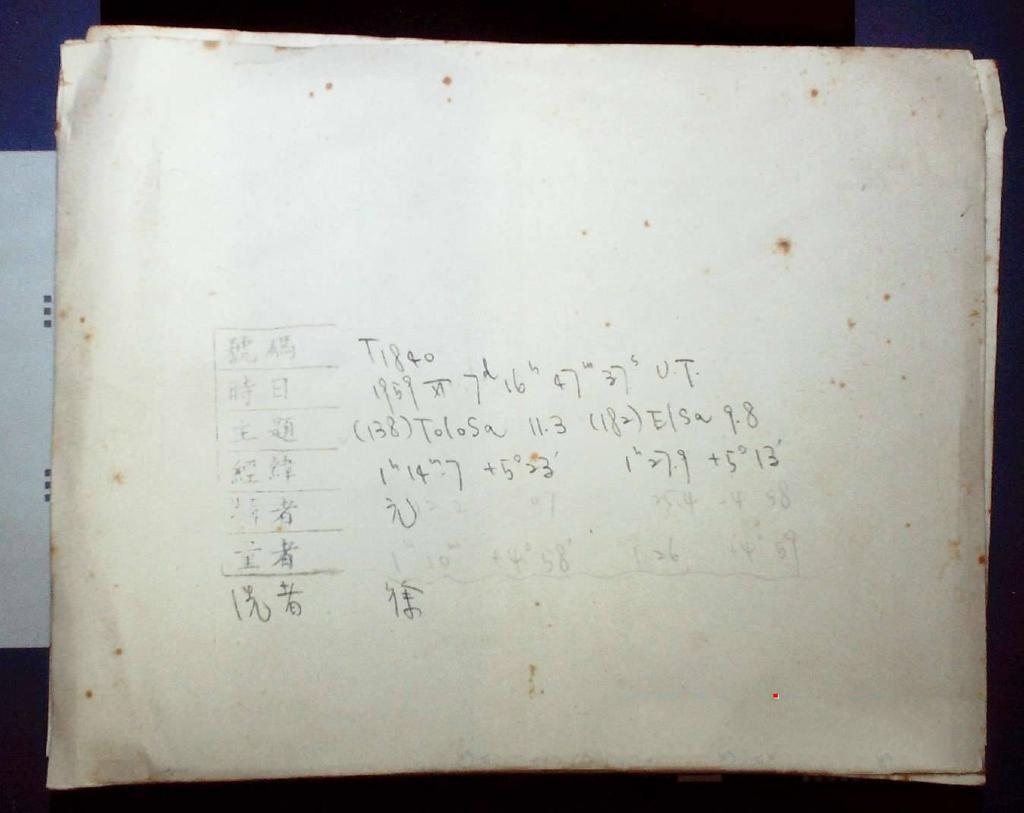 號碼 T1840
時日 1959 XI 7d 16h 47m 37s U.T.
主題 (138) Tolosa 11.3 (182) Elsa 9.8
經緯 1h 14m.7 +5°23′ 1h 27.9 +5°13′
者 元
者 1h 10m +4°58′ 1 26 +4°59
洗者 徐